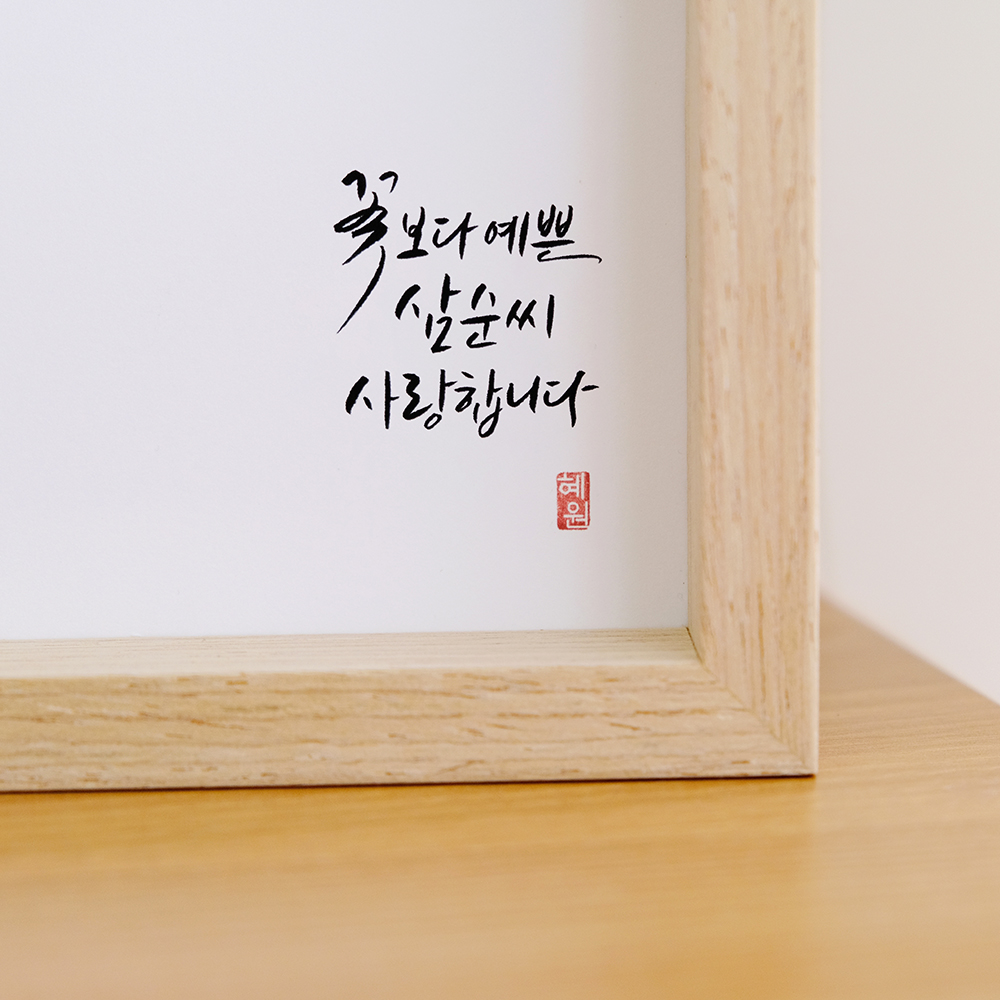 꽃보다 예쁜
삼순씨
사랑합니다
혜
원